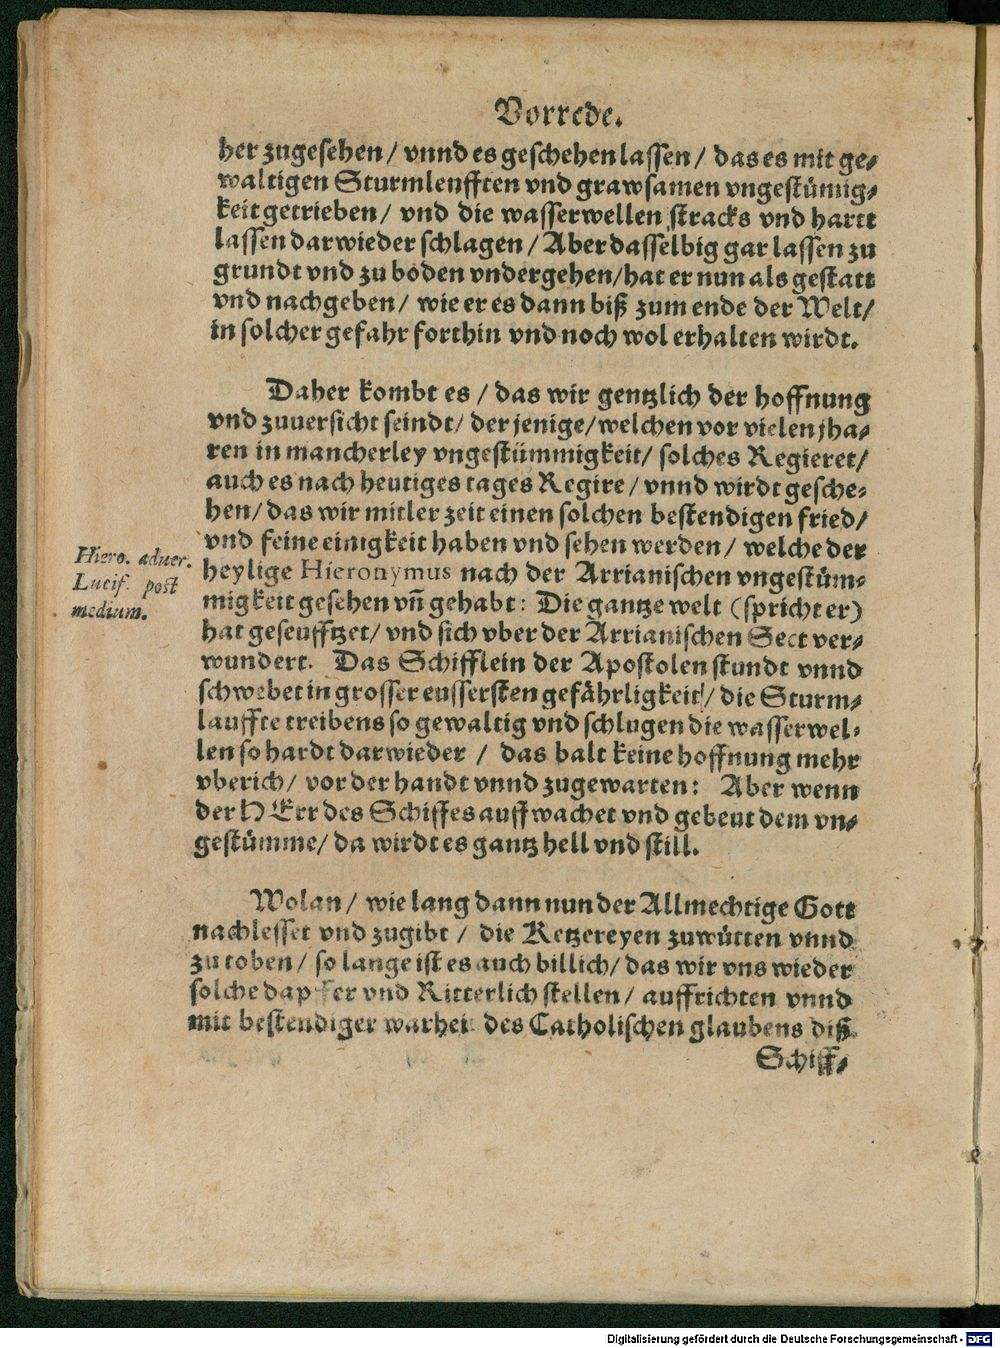 Vorrede.
her zugesehen / vnnd es geschehen lassen / das es mit ge⸗
waltigen Sturmleufften vnd grawsamen vngestümig⸗
keit getrieben / vnd die wasserwellen stracks vnd hartt
lassen darwieder schlagen / Aber dasselbig gar lassen zu
grundt vnd zu boden vndergehen / hat er nun als gestatt
vnd nachgeben / wie er es dann biß zum ende der Welt /
in solcher gefahr forthin vnd noch wol erhalten wirdt.
Daher kombt es / das wir gentzlich der hoffnung
vnd zuuersicht seindt / der jenige / welchen vor vielen jha⸗
ren in mancherley vngestümmigkeit / solches Regieret /
auch es nach heutiges tages Regire / vnnd wirdt gesche⸗
hen / das wir mitler zeit einen solchen bestendigen fried /
vnd feine einigkeit haben vnd sehen werden / welche der
Hiero. aduer.
Lucif. post
medium.
heylige Hieronymus nach der Arrianischen vngestüm⸗
migkeit gesehen vñ gehabt: Die gantze welt (spricht er)
hat geseufftzet / vnd sich vber der Arrianischen Sect ver⸗
wundert. Das Schifflein der Apostolen stundt vnnd
schwebet in grosser eussersten gefährligkeit / die Sturm⸗
lauffte treibens so gewaltig vnd schlugen die wasserwel⸗
len so hardt darwieder / das balt keine hoffnung mehr
vberich / vor der handt vnnd zugewarten: Aber wenn
der HErr des Schiffes auffwachet vnd gebeut dem vn⸗
gestümme / da wirdt es gantz hell vnd still.
Wolan / wie lang dann nun der Allmechtige Gott
nachlesset vnd zugibt / die Ketzereyen zuwütten vnnd
zu toben / so lange ist es auch billich / das wir vns wieder
solche dapffer vnd Ritterlich stellen / auffrichten vnnd
mit bestendiger warheit des Catholischen glaubens diß
Schiff⸗
Digitalisierung gefördert durch die Deutsche Forschungsgemeinschaft - DFG